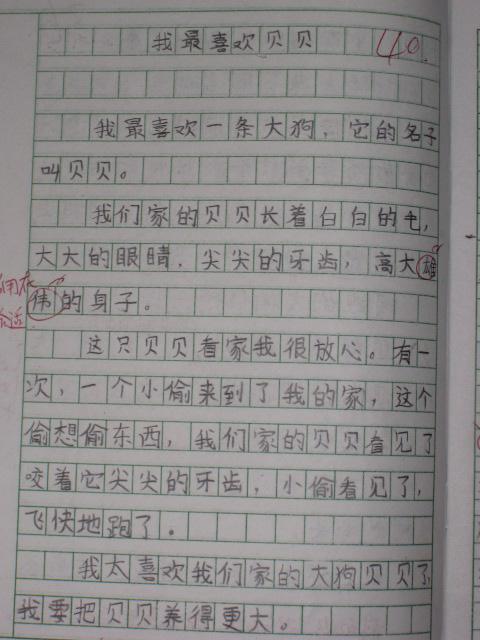 我最喜欢贝贝 40.
我最喜欢一条大狗，它的名子
叫贝贝。
我们家的贝贝长着白白的毛，
大大的眼睛，尖尖的牙齿，高大雄
伟的身子。
这只贝贝看家我很放心。有一
次，一个小偷来到了我的家，这个
偷想偷东西，我们家的贝贝看见了
咬着它尖尖的牙齿，小偷看见了，
飞快地跑了。
我太喜欢我们家的大狗贝贝了，
我要把贝贝养得更大。